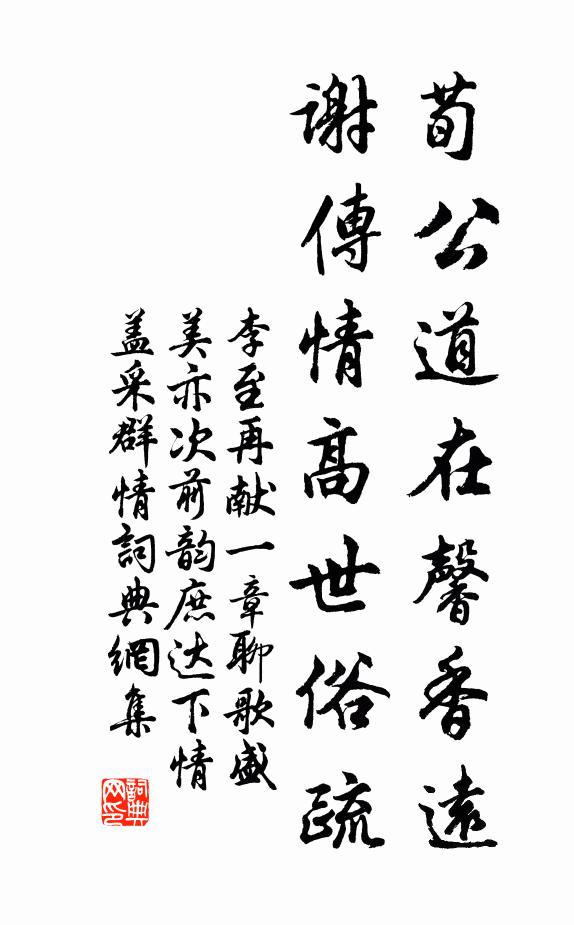 荀公道在馨香遠
謝傅情高世俗疏
李至再献一章聊歌盛
美亦次前韵庶达下情
盖采群情詞典網集
詞典网印